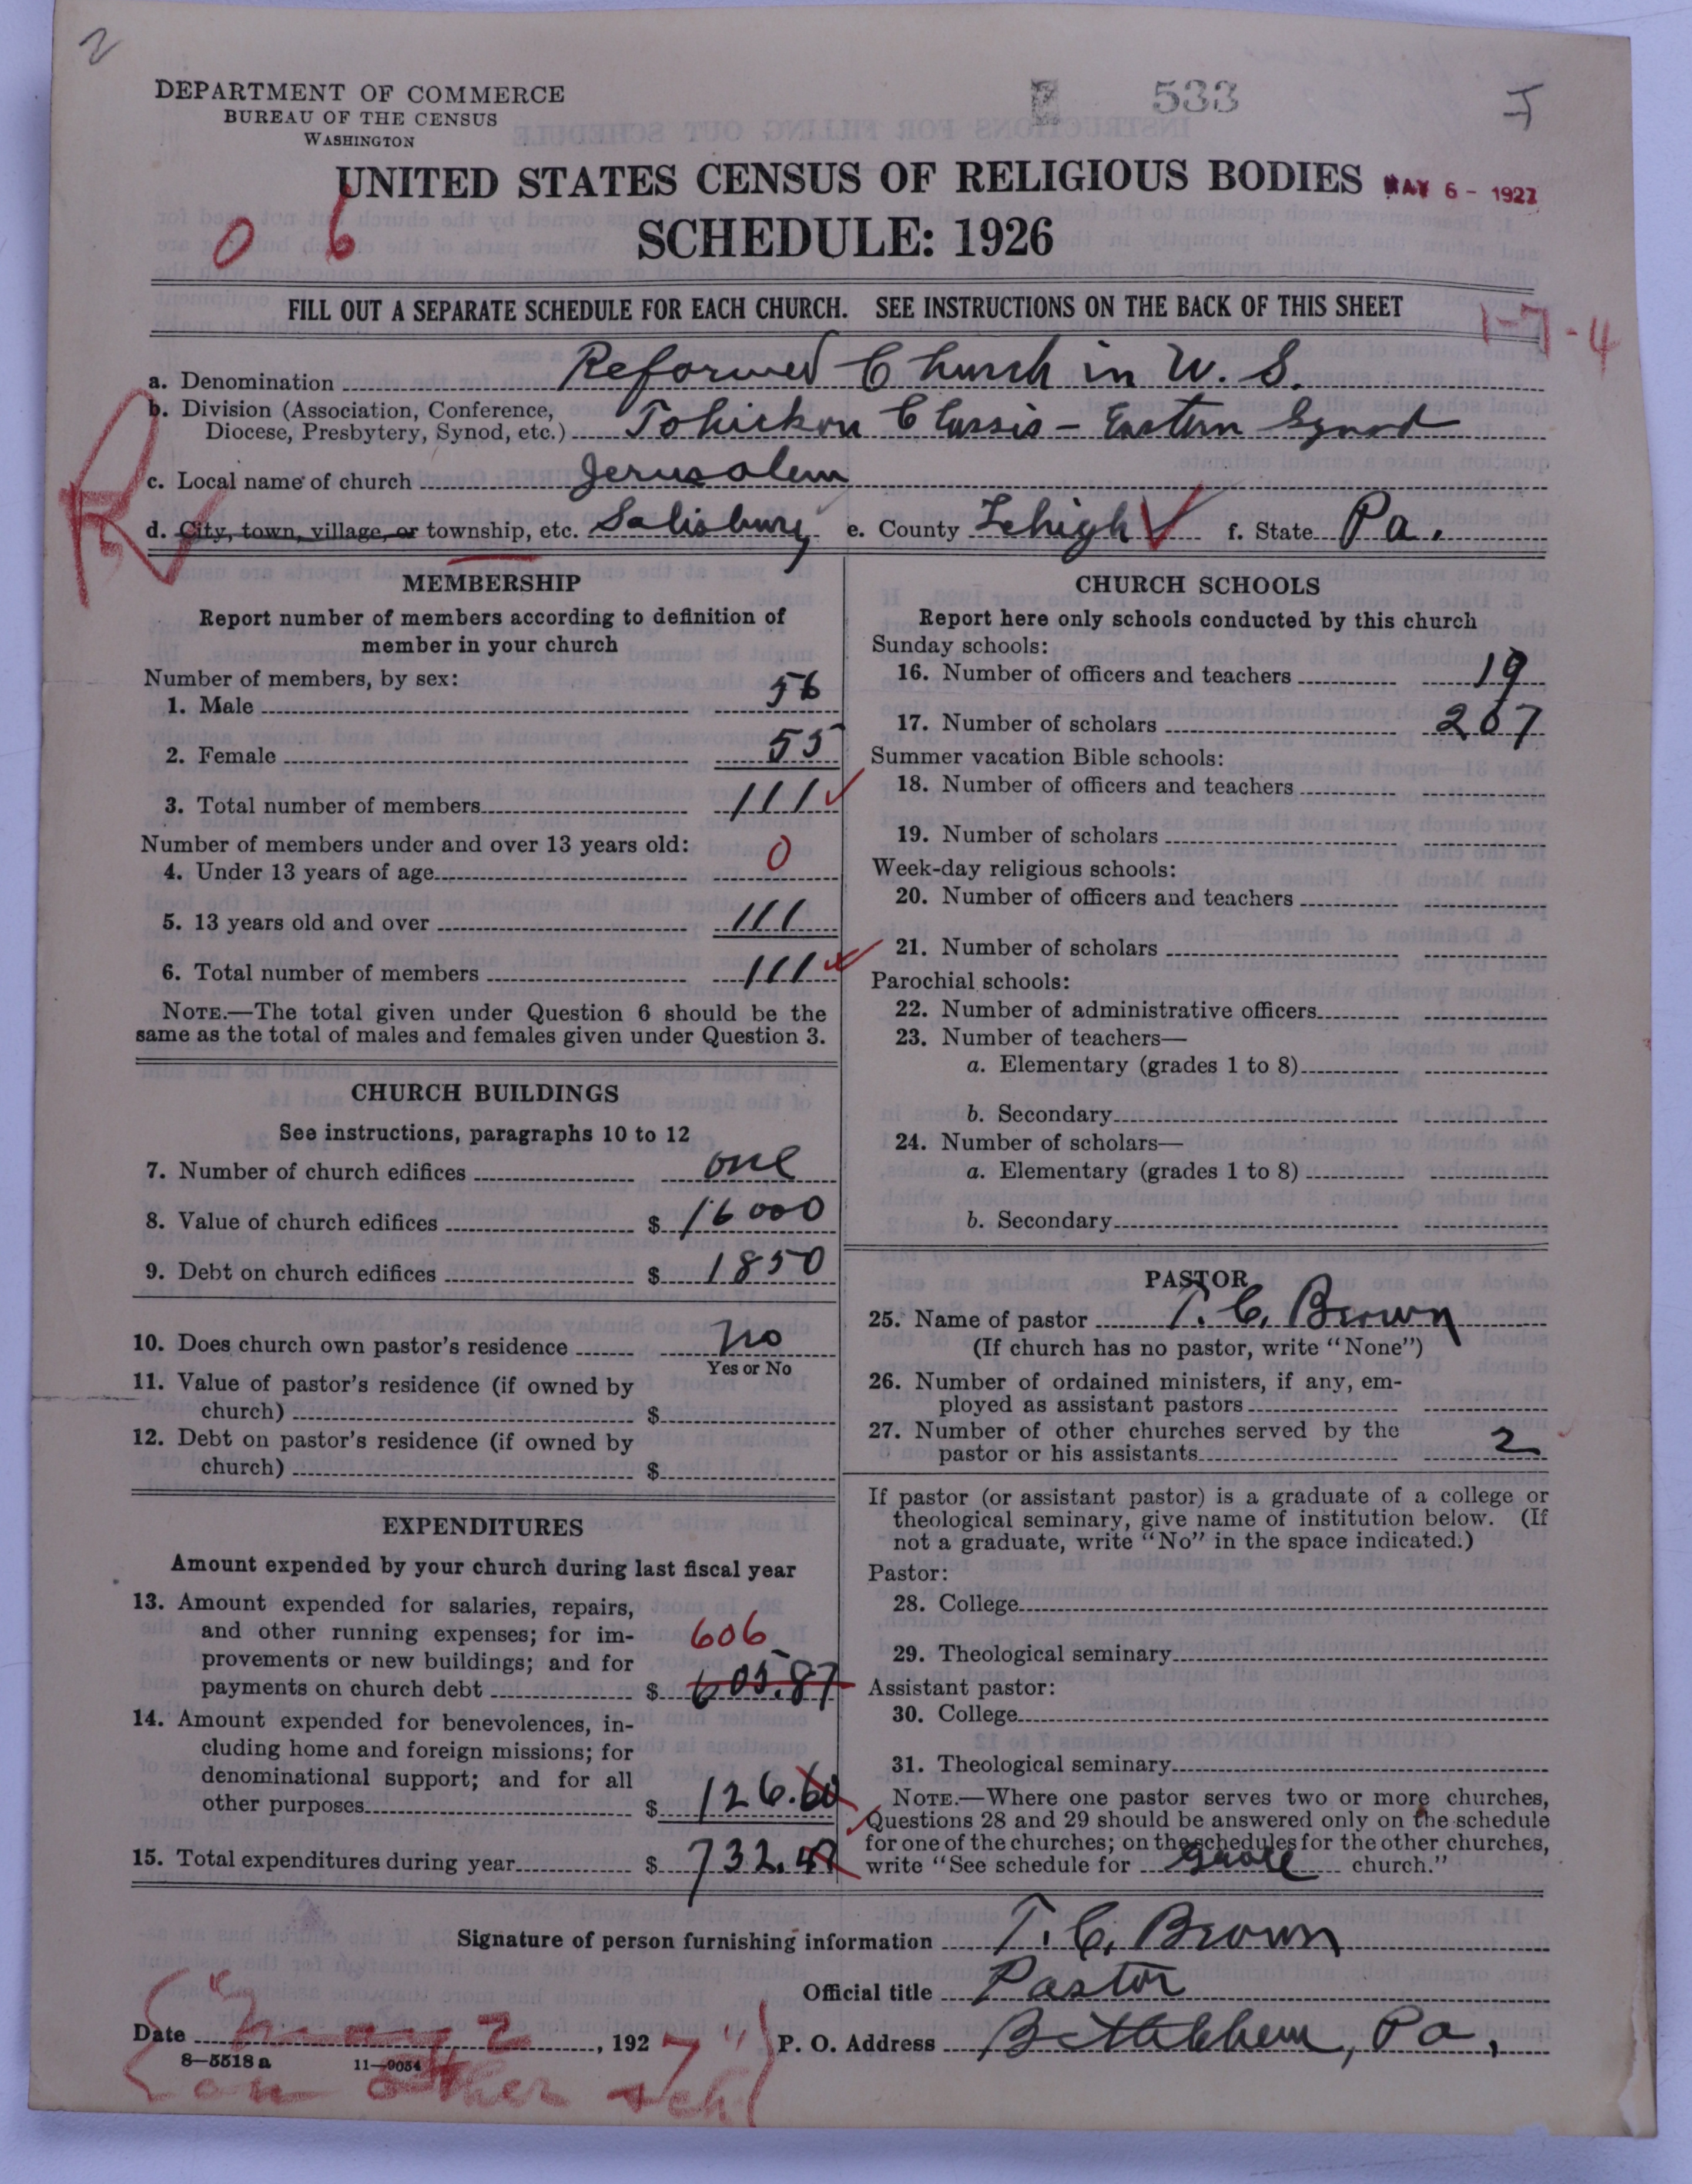 2
DEPARTMENT OF COMMERCE
BUREAU OF THE CENSUS
WASHINGTON
533
UNITED STATES CENSUS OF RELIGIOUS BODIES
MAY 6 - 1927
0 6
SCHEDULE: 1926
FILL OUT A SEPARATE SCHEDULE FOR EACH CHURCH. SEE INSTRUCTIONS ON THE BACK OF THIS SHEET
1-7-4
a. Denomination Reformed Church in U. S.
b. Division (Association, Conference,
Diocese, Presbytery, Synod, etc.) Tohickon Classis - Eastern Synod
c. Local name of church Jerusalem
d. City, town, village, or township, etc. Salisbury e. County Lehigh f. State Pa.
MEMBERSHIP
Report number of members according to definition of
member in your church
Number of members, by sex:
1. Male 56
2. Female 55
3. Total number of members 111
Number of members under and over 13 years old:
4. Under 13 years of age 0
5. 13 years old and over 111
6. Total number of members 111
NOTE.—The total given under Question 6 should be the
same as the total of males and females given under Question 3.
CHURCH BUILDINGS
See instructions, paragraphs 10 to 12
7. Number of church edifices one
8. Value of church edifices $ 16000
9. Debt on church edifices $ 1850
10. Does church own pastor's residence No
Yes or No
11. Value of pastor's residence (if owned by
church) $
12. Debt on pastor's residence (if owned by
church) $
EXPENDITURES
Amount expended by your church during last fiscal year
13. Amount expended for salaries, repairs,
and other running expenses; for im-
606
provements or new buildings; and for
payments on church debt $ 605.87
14. Amount expended for benevolences, in-
cluding home and foreign missions; for
denominational support; and for all
other purposes $ 126.60
15. Total expenditures during year $ 732.47
CHURCH SCHOOLS
Report here only schools conducted by this church
Sunday schools:
16. Number of officers and teachers 19
17. Number of scholars 267
Summer vacation Bible schools:
18. Number of officers and teachers
19. Number of scholars
Week-day religious schools:
20. Number of officers and teachers
21. Number of scholars
Parochial schools:
22. Number of administrative officers
23. Number of teachers—
a. Elementary (grades 1 to 8)
b. Secondary
24. Number of scholars—
a. Elementary (grades 1 to 8)
b. Secondary
PASTOR
25. Name of pastor T. C. Brown
(If church has no pastor, write "None")
26. Number of ordained ministers, if any, em-
ployed as assistant pastors
27. Number of other churches served by the
pastor or his assistants 2
If pastor (or assistant pastor) is a graduate of a college or
theological seminary, give name of institution below. (If
not a graduate, write "No" in the space indicated.)
Pastor:
28. College
29. Theological seminary
Assistant pastor:
30. College
31. Theological seminary
NOTE.—Where one pastor serves two or more churches,
Questions 28 and 29 should be answered only on the schedule
for one of the churches; on the schedules for the other churches,
write "See schedule for Grace church."
Signature of person furnishing information T. C. Brown
Official title Pastor
Date " May 2, 1927 " P. O. Address Bethlehem, Pa.,
8—5518 a 11—9054
on other sch